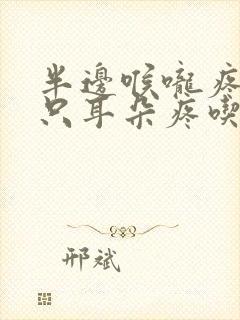 半邊喉嚨疼
只耳朵疼喫
邢斌